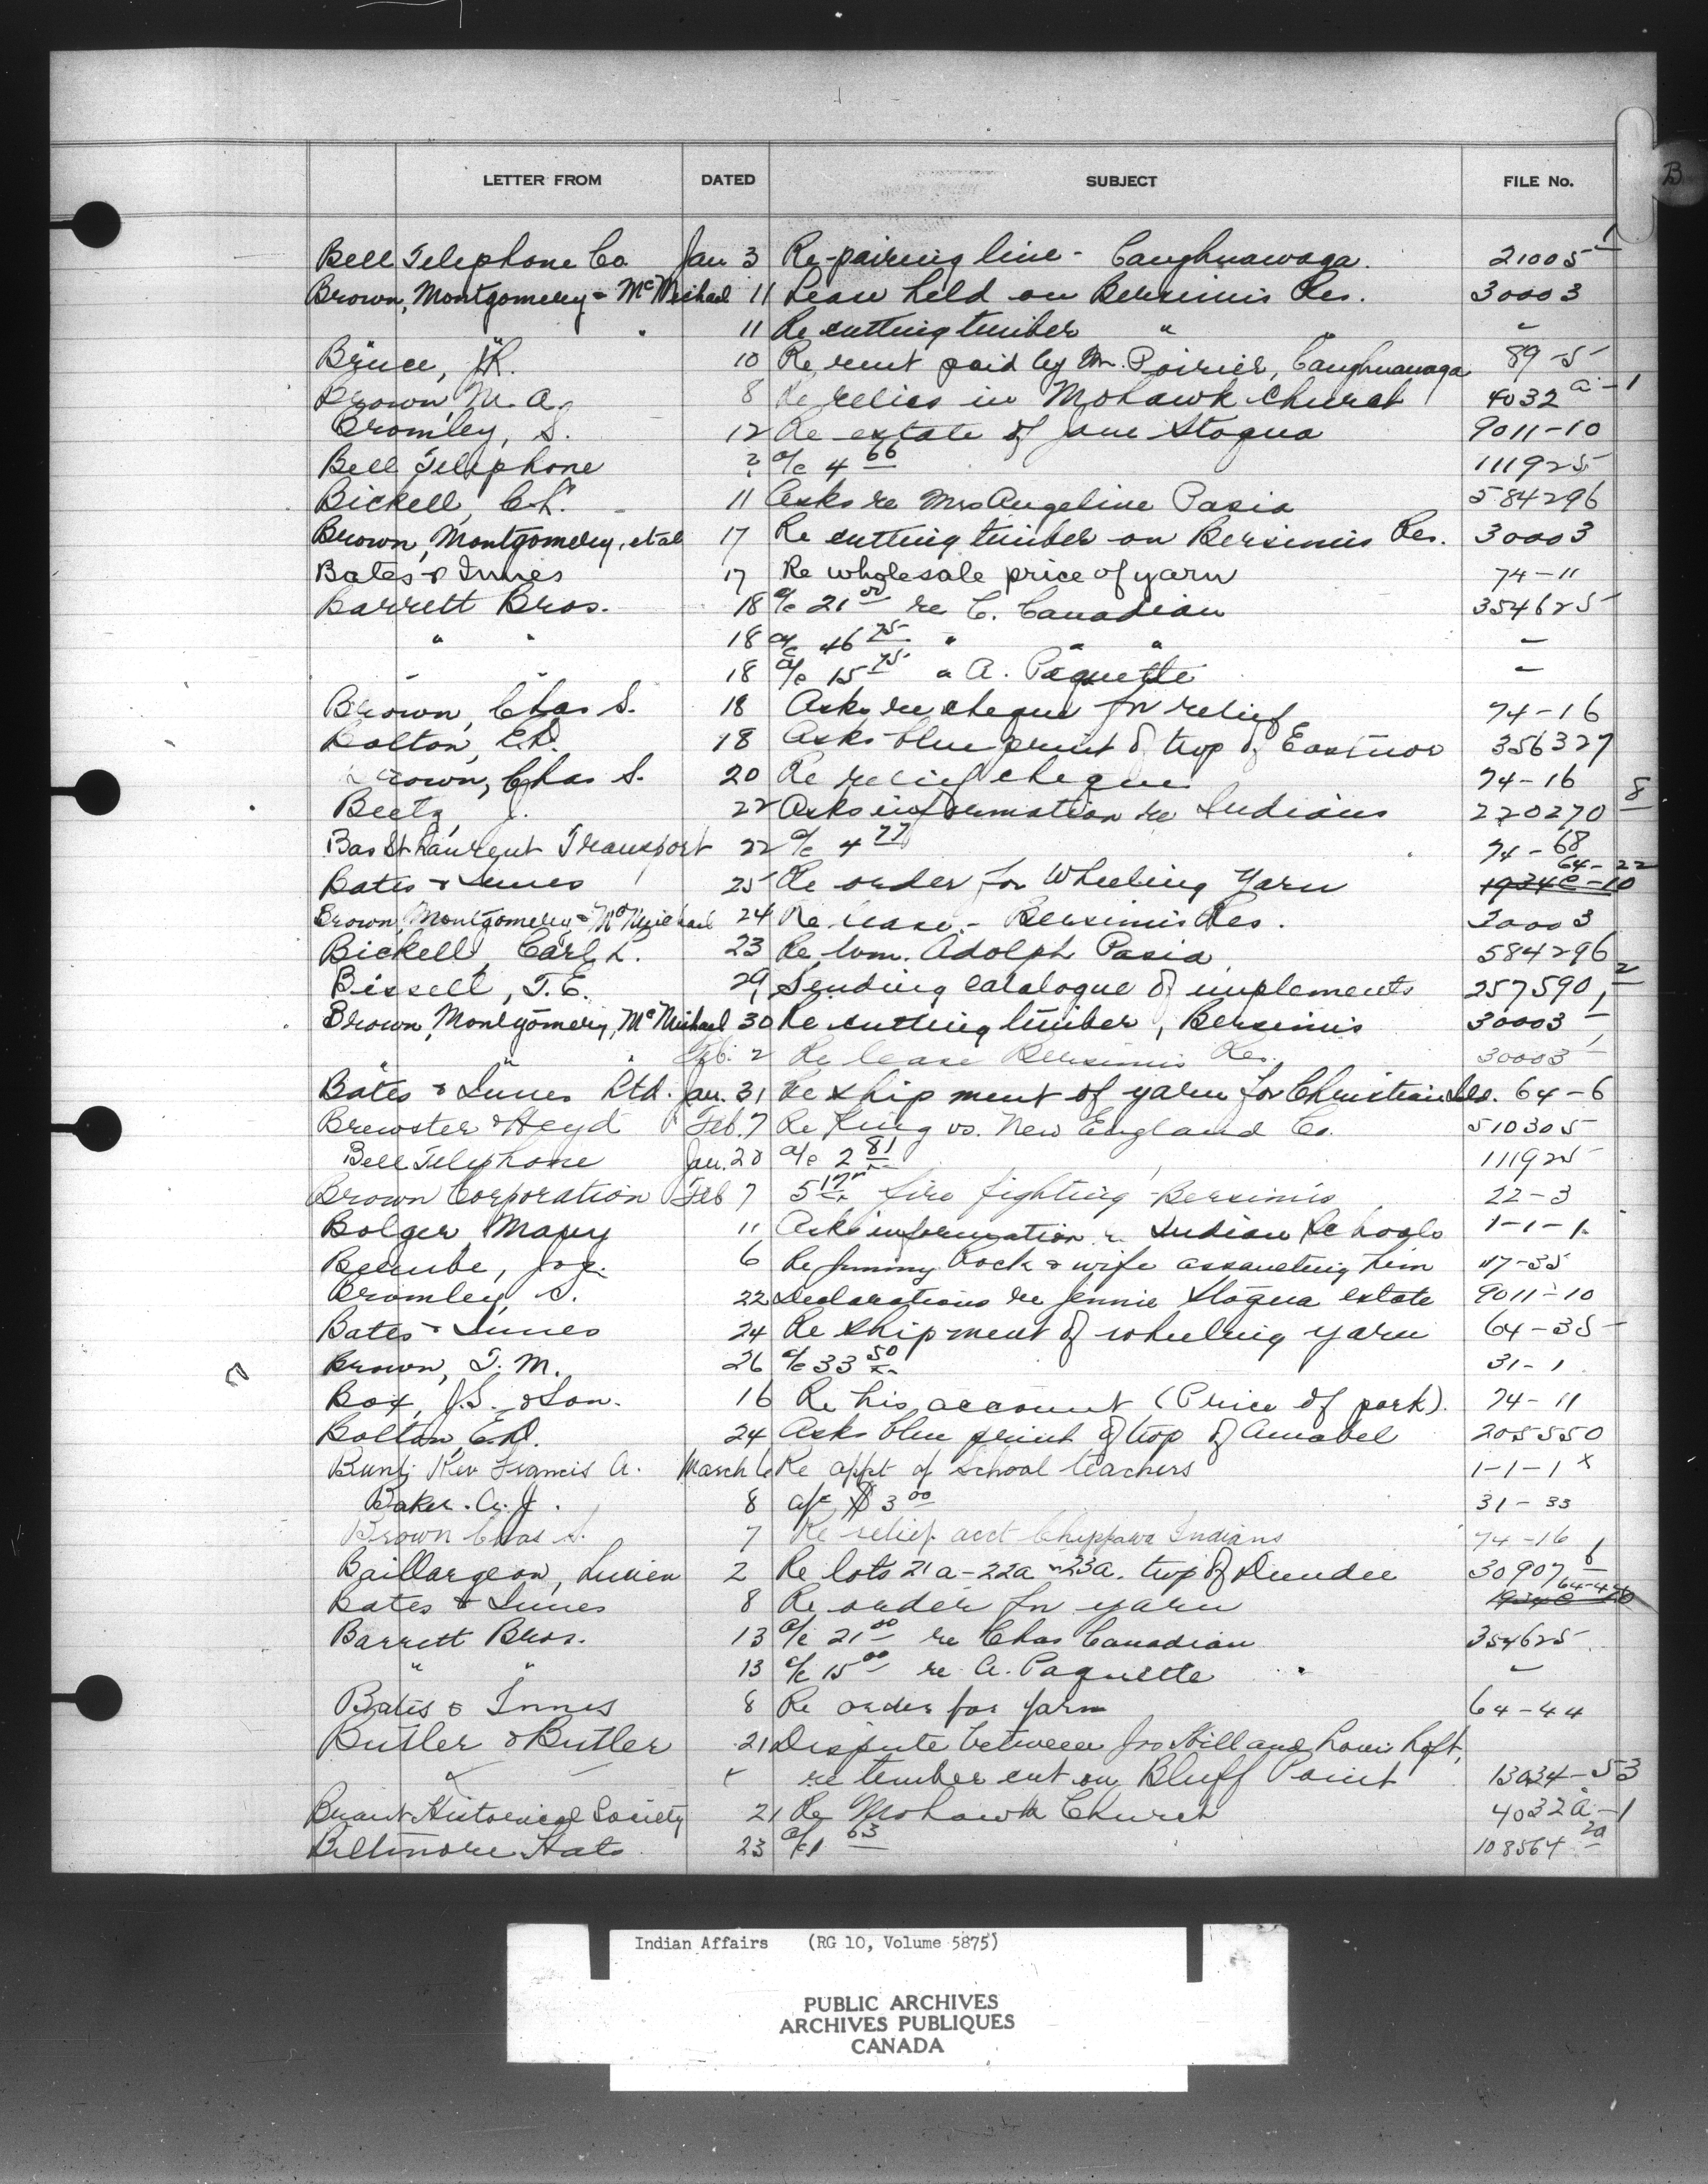 B
LETTER FROM DATED SUBJECT FILE No.
Bell Telephone Co Jan 3 Re-pairing line - Caughnawaga. 21005 1
Brown, Montgomery & McMichael 11 Lease held on Bersimis Res. 30003
" 11 Re cutting timber " " "
Bruce, J.R. 10 Re rent paid by M. Poirier, Caughnawaga 89-5
Brown, M. A. 8 Re relics in Mohawk Church 4032 a-1
Bromley, S. 12 Re estate of Jane Stogua 9011-10
Bell Telephone 2 a/c 4 66 111925
Bickell, C.L. 11 Asks re Mrs Angeline Pasia 584296
Brown, Montgomery, et al 17 Re cutting timber on Bersimis Res. 30003
Bates & Innes 17 Re wholesale price of yarn 74-11
Barrett Bros. 18 a/c 21 00 re C. Canadian 354625
" " 18 a/c 46 75 " " " "
" " 18 a/c 15 75 " A. Paquette "
Brown, Chas S. 18 Asks re cheque for relief 74-16
Bolton, E.D. 18 Asks blue print of twp of Eastnor 356327
Brown, Chas S. 20 Re relief cheque 74-16
Beetz, J. 22 Asks information re Indians 220270 8
Bas St Laurent Transport 22 a/c 4 77 74-68
Bates & Innes 25 Re order for Wheeling Yarn 19340-10 64-22
Brown, Montgomery & McMichael 24 Re lease - Bersimis Res. 30003
Bickell, Carl L. 23 Re Wm. Adolph Pasia 584296
Bissell, T.E. 29 Sending catalogue of implements 257590 2
Brown, Montgomery, McMichael 30 Re cutting timber, Bersimis 30003 1
" " " Feb. 2 Re lease Bersimis Res. 30003 1
Bates & Innes Ltd. Jan. 31 Re shipment of yarn for Christian Isd. 64-6
Brewster & Heyd Feb. 7 Re King vs. New England Co. 510305
Bell Telephone Jan. 28 a/c 2 81 111925
Brown Corporation Feb 7 5 17 fire fighting - Bersimis 22-3
Bolger, Mary 11 Asks information re Indian Schools 1-1-1
Jos. 6 Re Jimmy Rock & wife assaulting him 117-35
Bromley, S. 22 Declarations re Jennie Stogua estate 9011-10
Bates & Innes 24 Re shipment of wheeling yarn 64-35
Brown, T. M. 26 a/c 33 50 31-1
Box, J.S. & Son. 16 Re his account (Price of pork). 74-11
Bolton, E.D. 24 Asks blue print of twp of Amabel 205550
Rev Francis A. March 6 Re appt of School teachers 1-1-1 x
Baker. A. J. 8 a/c $3 00 31-33
Brown Chas S. 7 Re relief acct Chippawa Indians 74-16
Baillargeon, Lucien 2 Re lots 21a-22a-23a. twp of Dundee 30907 6
Bates & Innes 8 Re order for yarn 19340-10 64-44
Barrett Bros. 13 a/c 21 00 re Chas Canadian 354625
" " 13 a/c 15 00 re A. Paquette "
Bates & Innes 8 Re order for yarn 64-44
Butler & Butler 21 Dispute between Jno Hill and Loft,
re timber cut on Bluff Point 13034-53
Brant Historical Society 21 Re Mohawk Church 4032 a-1
Biltmore Hats 23 a/c 1 63 108564 2a
Indian Affairs (RG 10, Volume 5875)
PUBLIC ARCHIVES
ARCHIVES PUBLIQUES
CANADA